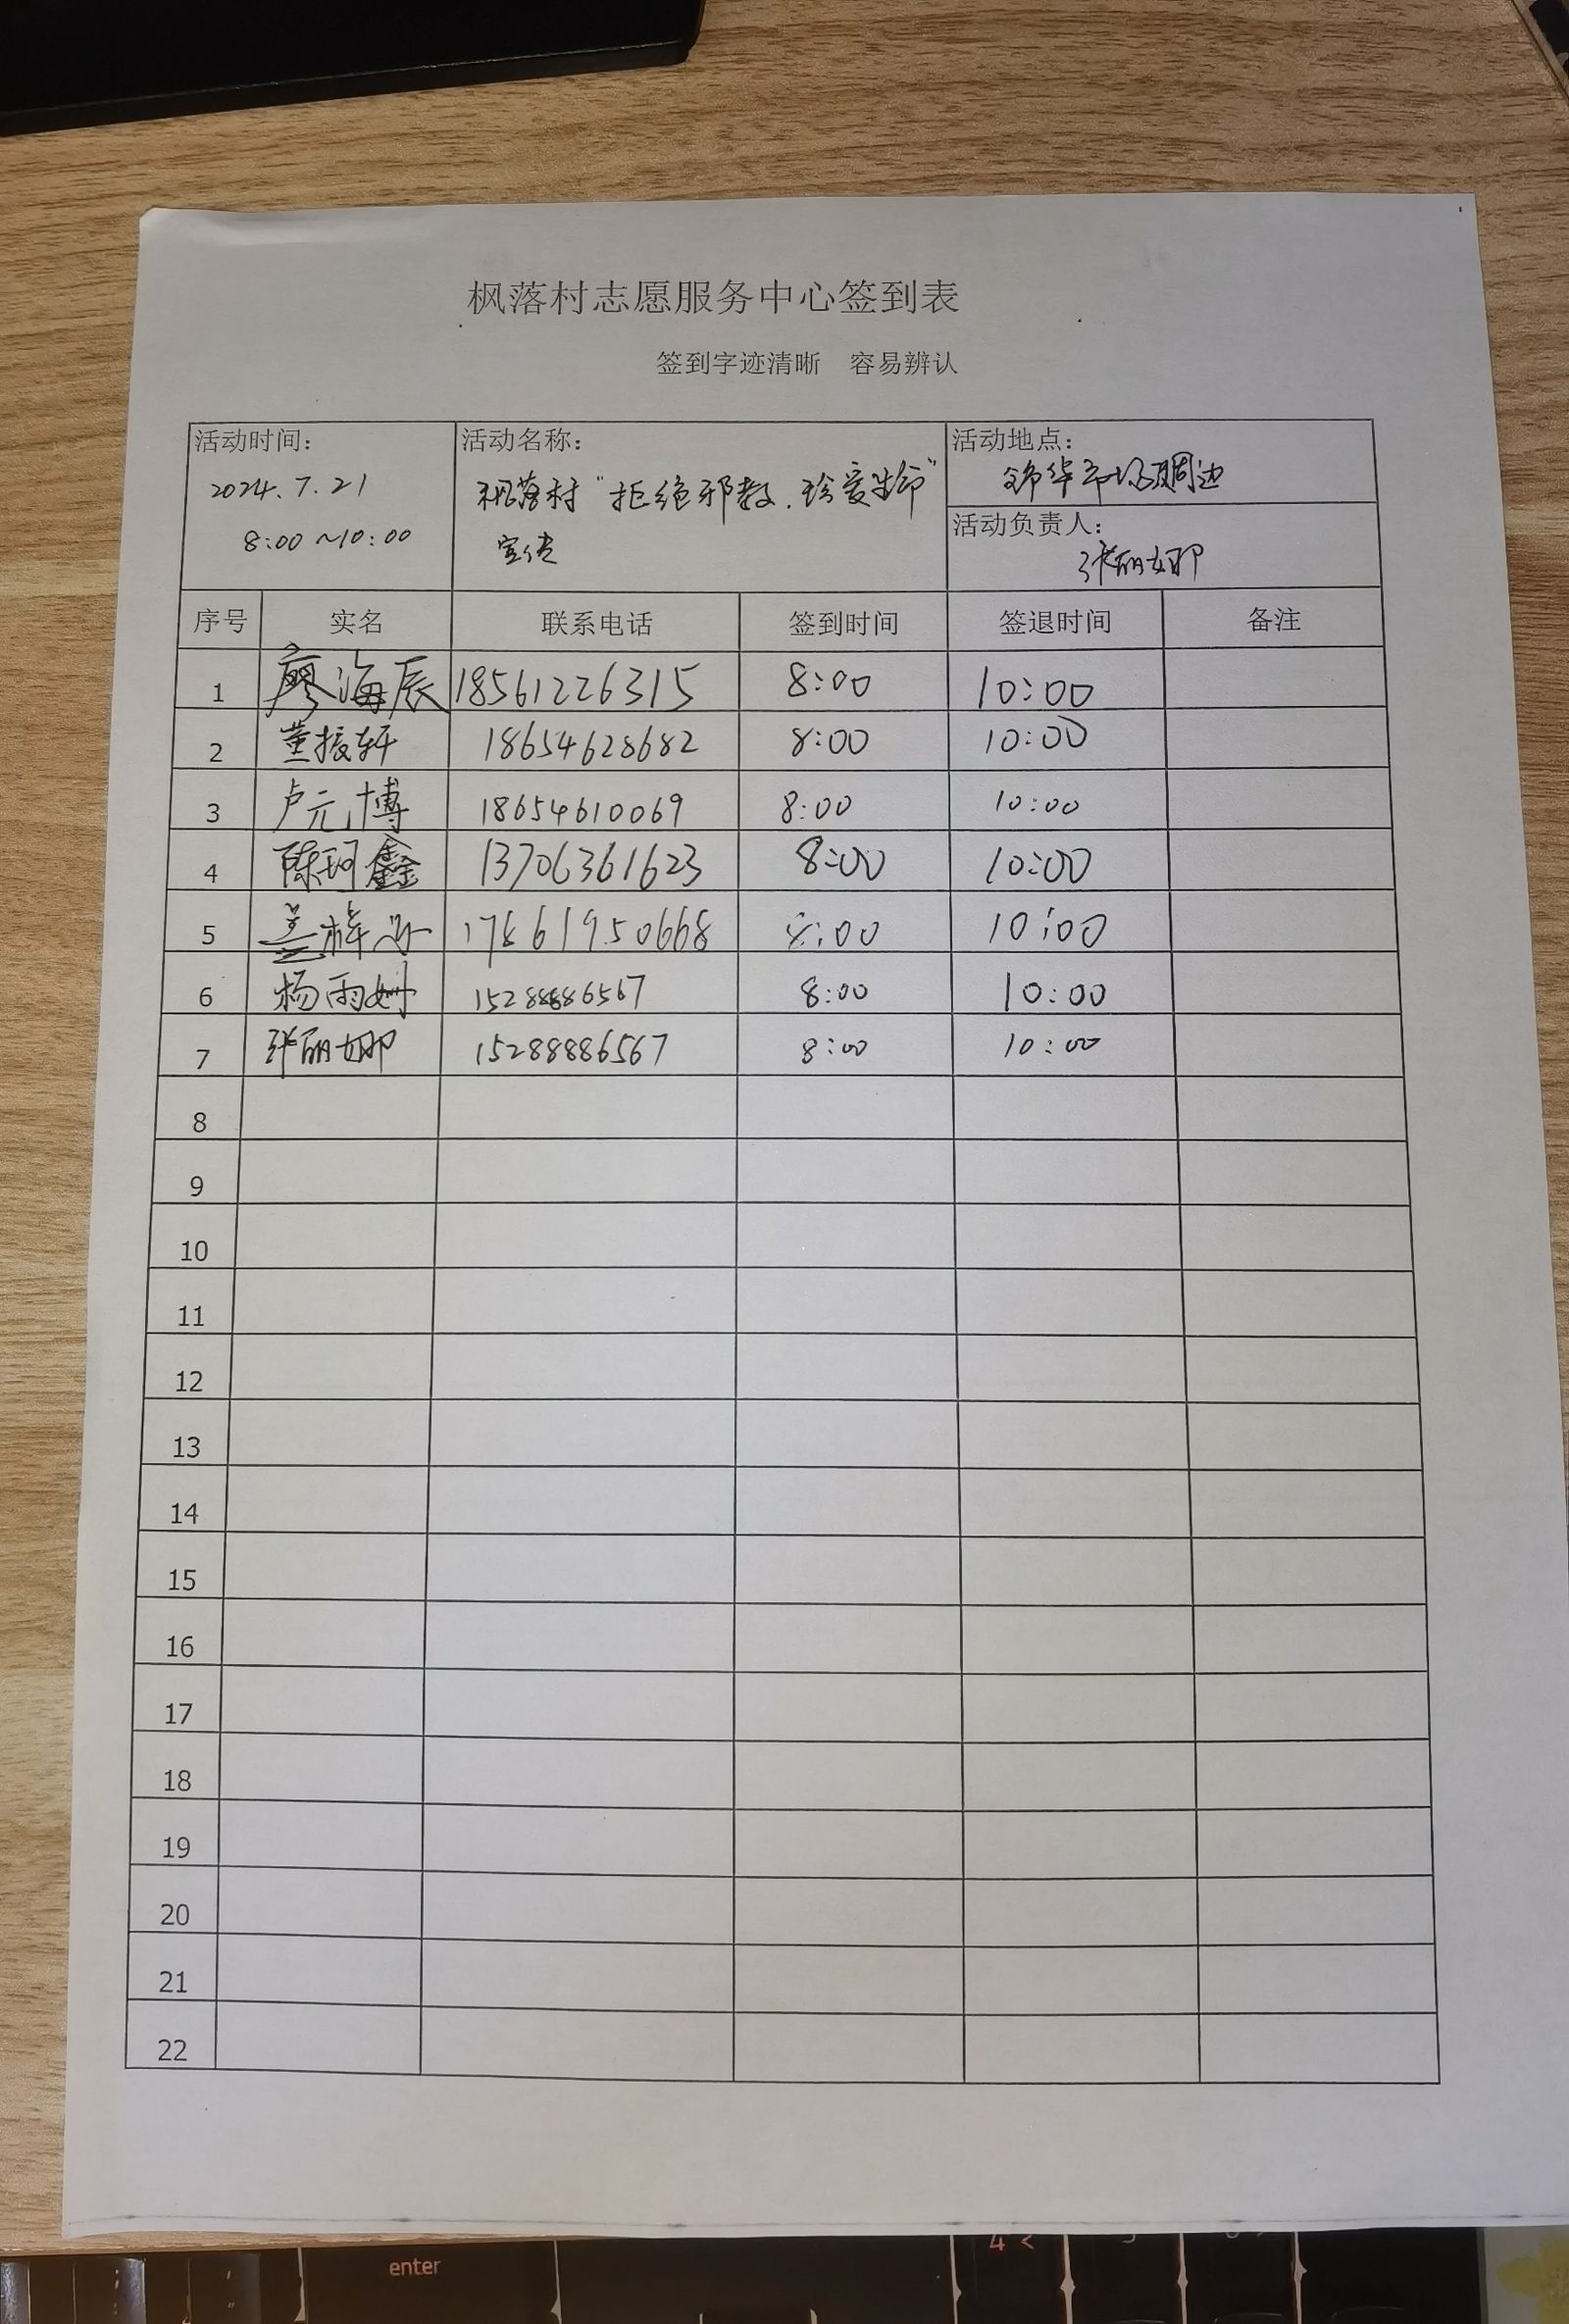 枫落村志愿服务中心签到表
签到字迹清晰 容易辨认
活动时间: 活动名称: 活动地点:
2024.7.21 枫落村“拒绝邪教.珍爱生命” 锦华市场周边
8:00~10:00 宣传 活动负责人:
张丽娜
序号 实名 联系电话 签到时间 签退时间 备注
1 廖海辰 18561226315 8:00 10:00
2 董振轩 18654628682 8:00 10:00
3 卢元博 18654610069 8:00 10:00
4 陈珂鑫 13706361623 8:00 10:00
5 盖梓 17861950668 8:00 10:00
6 杨雨 15288886567 8:00 10:00
7 张丽娜 15288886567 8:00 10:00
8
9
10
11
12
13
14
15
16
17
18
19
20
21
22
enter
4 <